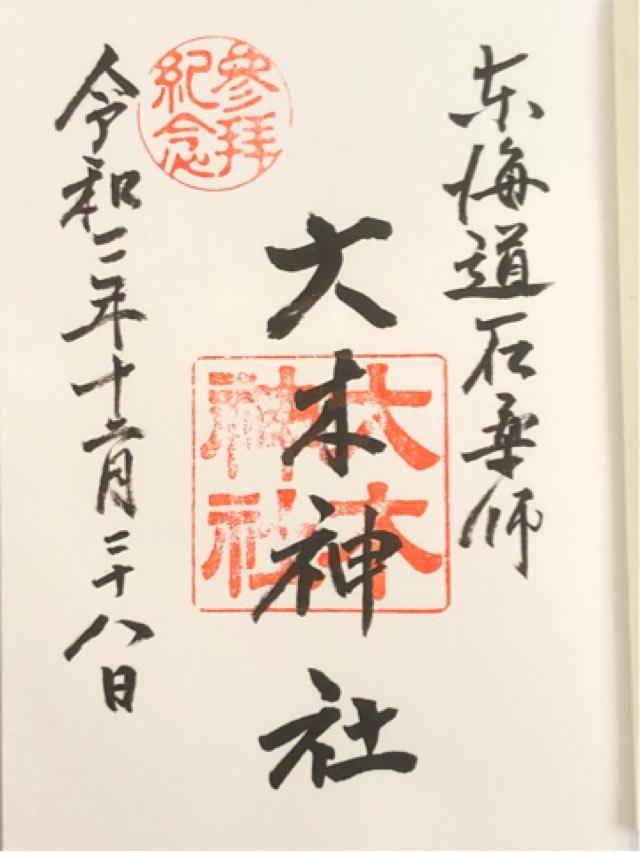 東海道石薬師
大木神社
大木神社
參拝紀念
令和二年十二月二十八日